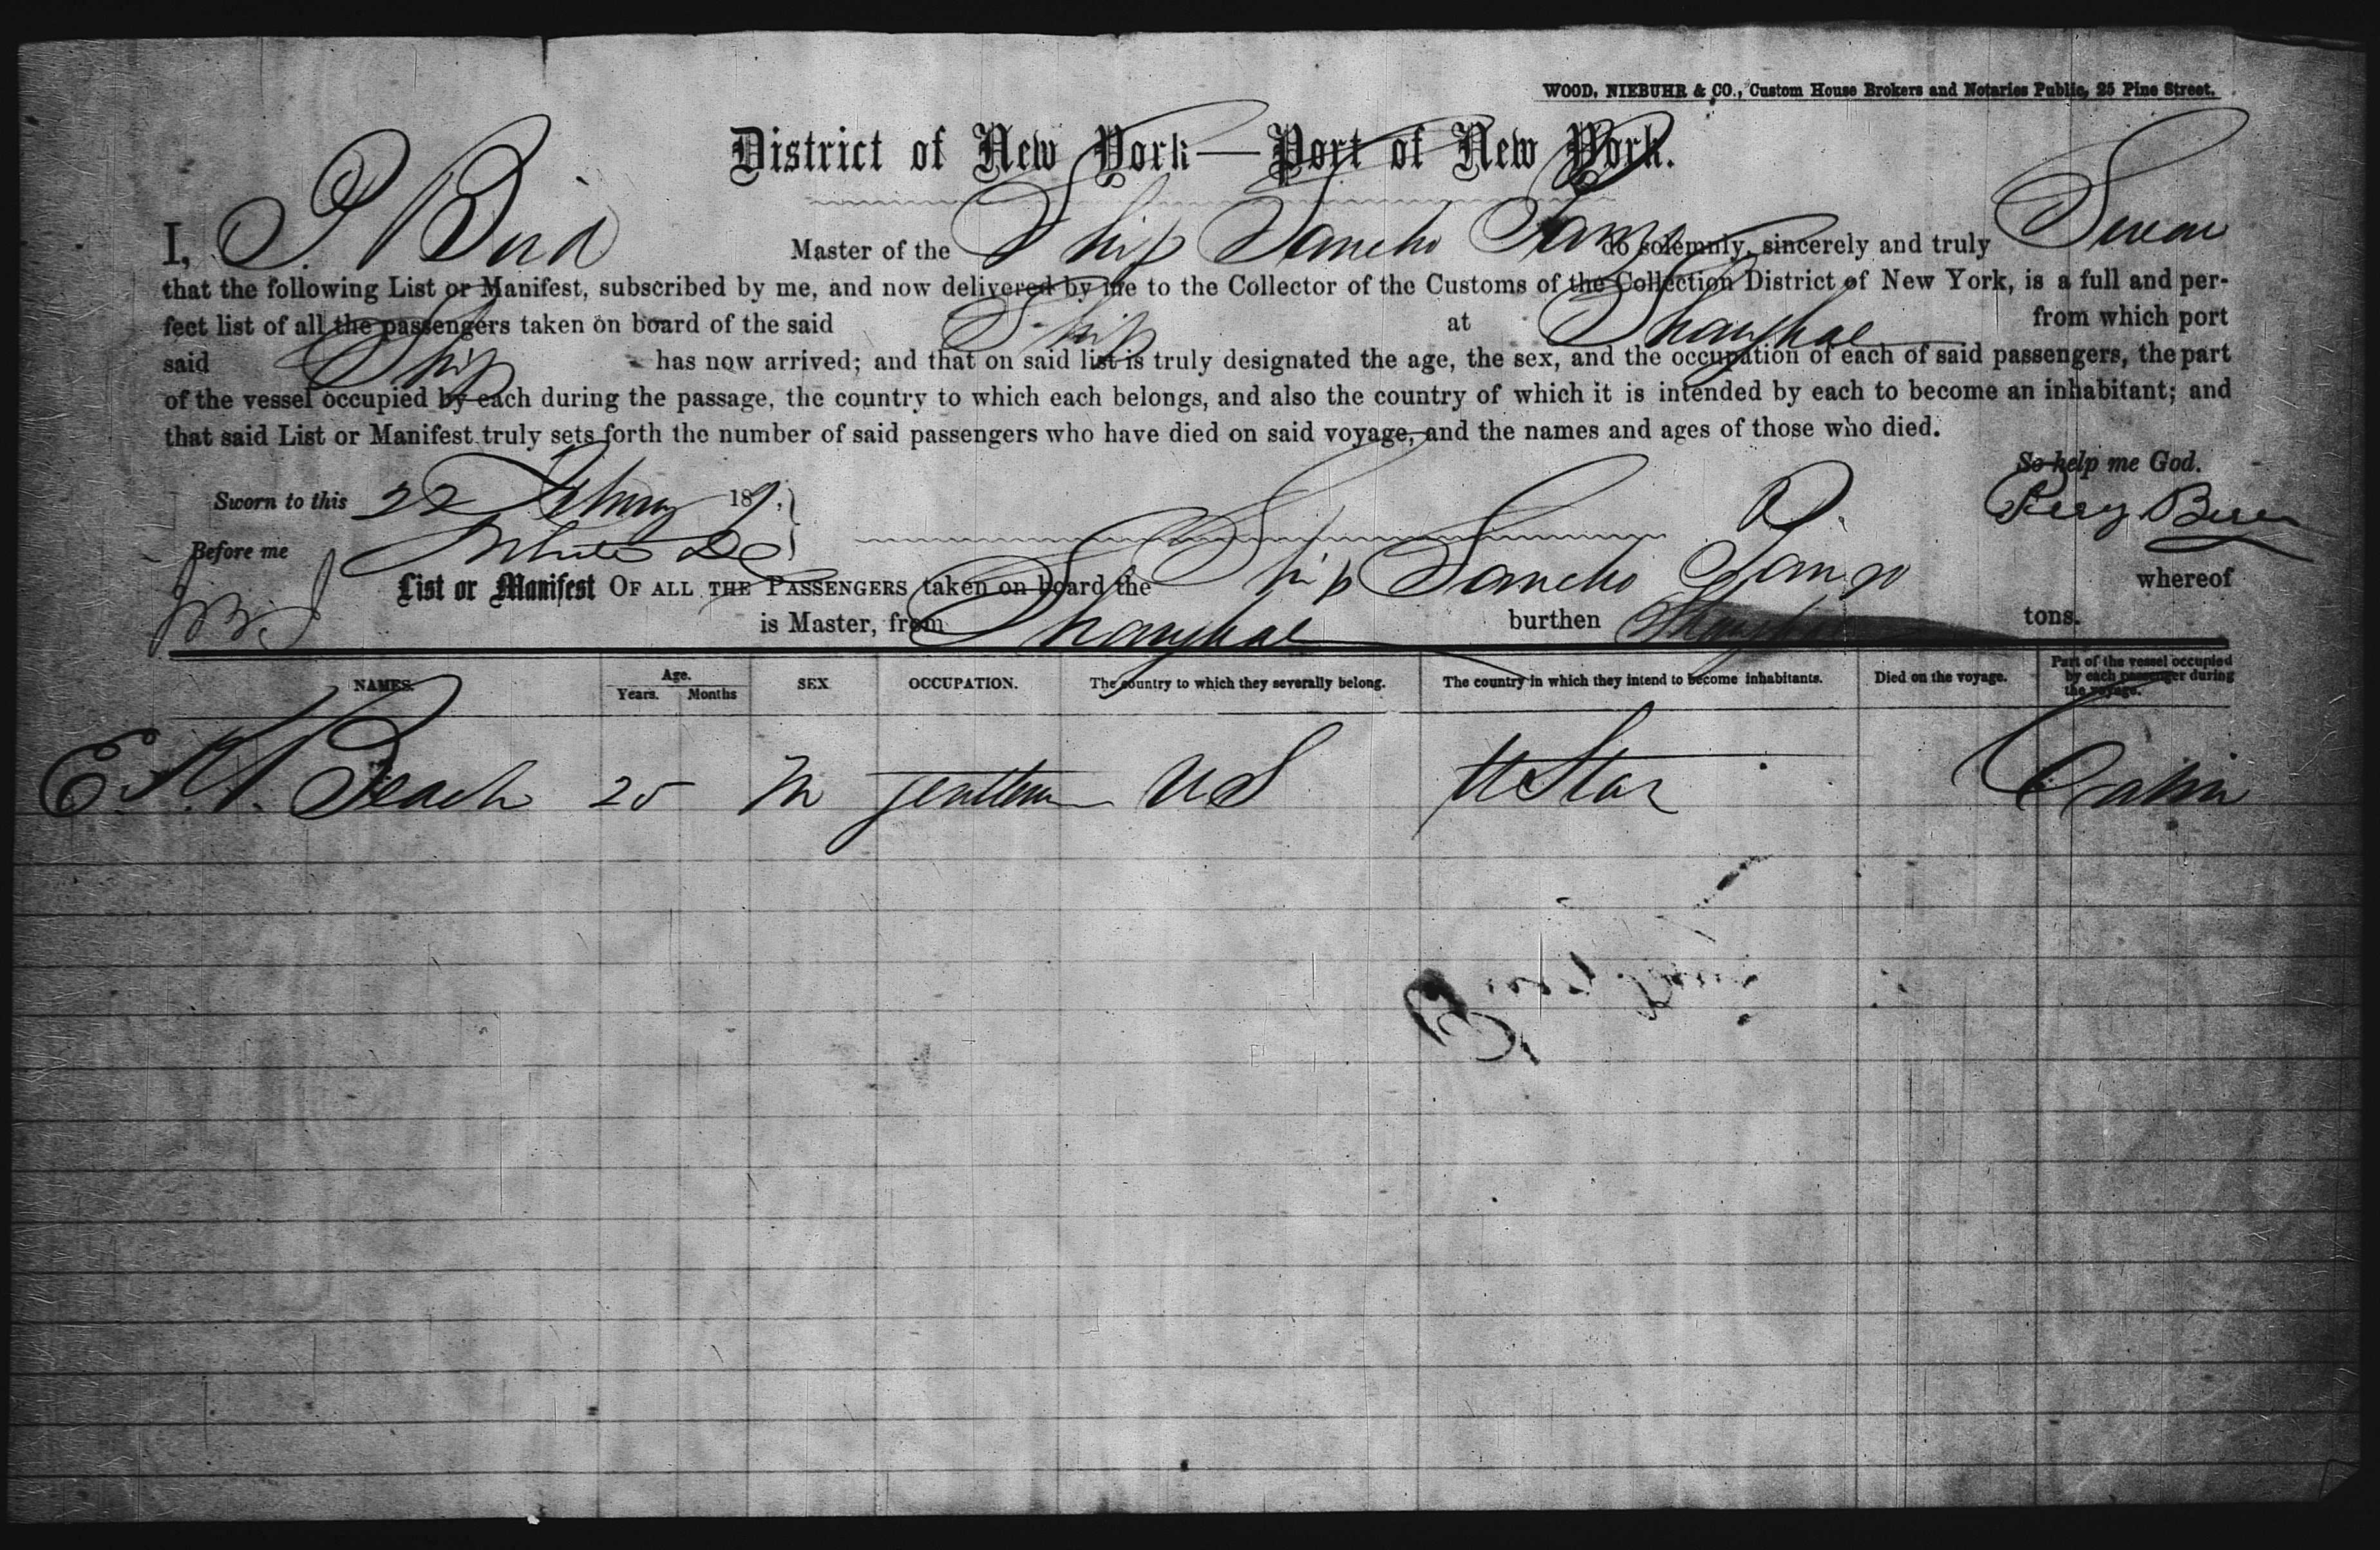 WOOD, NIEBUHR & CO., Custom House Brokers and Notaries Public, 25 Pine Street.
District of New York—Port of New York.
I, P Bird Master of the Ship Sancho Panza do solemnly, sincerely and truly Swear
that the following List or Manifest, subscribed by me, and now delivered by me to the Collector of the Customs of the Collection District of New York, is a full and per-
fect list of all the passengers taken on board of the said Ship at Shanghae from which port
said Ship has now arrived; and that on said list is truly designated the age, the sex, and the occupation of each of said passengers, the part
of the vessel occupied by each during the passage, the country to which each belongs, and also the country of which it is intended by each to become an inhabitant; and
that said List or Manifest truly sets forth the number of said passengers who have died on said voyage, and the names and ages of those who died.
So help me God.
Sworn to this 22 186
Before me
List or Manifest OF ALL THE PASSENGERS taken on board the Ship Sancho Panza whereof
is Master, from Shanghae burthen tons.
NAMES. Age. Years. Months SEX OCCUPATION. The country to which they severally belong. The country in which they intend to become inhabitants. Died on the voyage. Part of the vessel occupied by each passenger during the voyage.
E. Beach 25 M gentleman U S Cabin